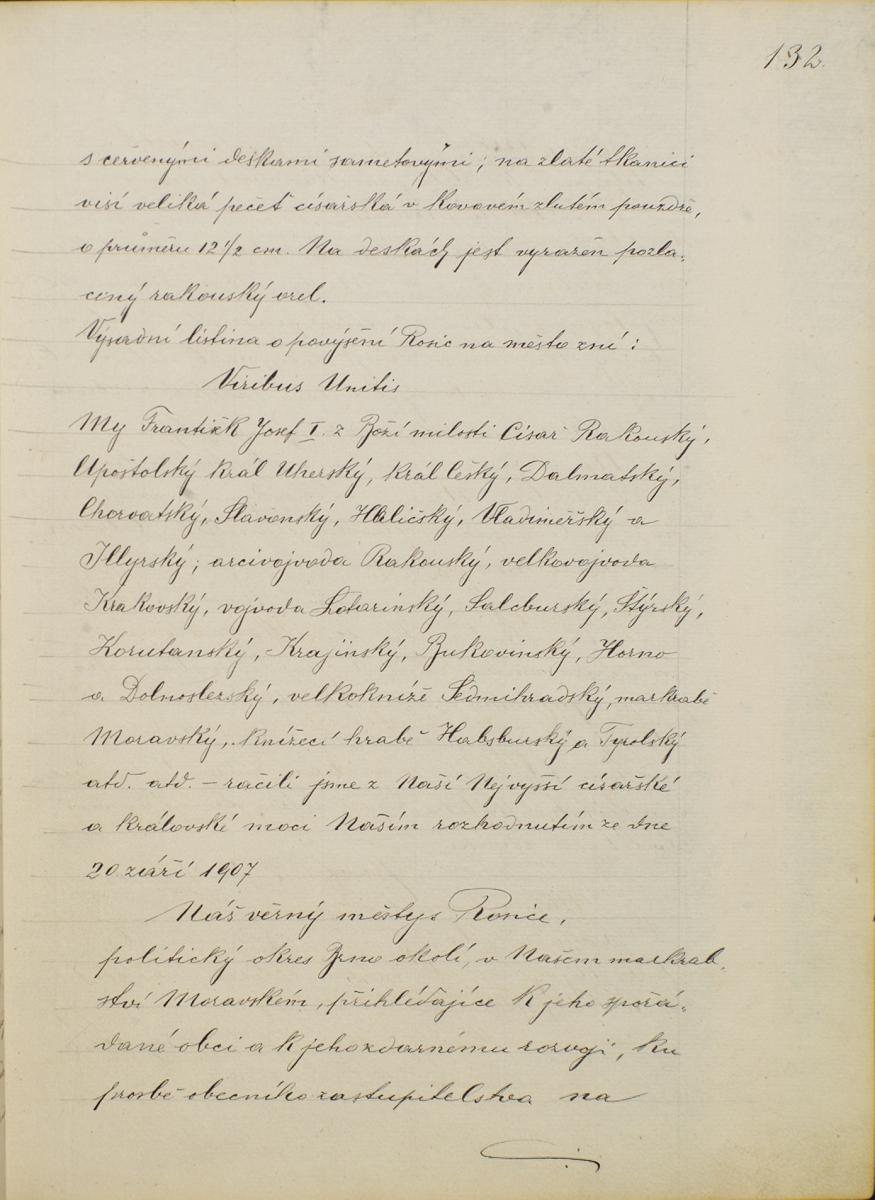 132.
s červenými deskami sametovými; na zlaté tkanici
visí veliká pečeť císařská v kovovém zlutém pouzdře,
o průměru 12 1/2 cm. Na deskách jest vyražen pozla-
cený rakouský orel.
Výsadní listina o povýšení Rosic na město zní:
Viribus Unitis
My František Josef I. z Boží milosti Císař Rakouský,
Apoštolský král Uherský, král český, Dalmatský,
Chorvatský, Slavonský, Haličský, Vladiměřský a
Illyrský; arcivojvoda Rakouský, velkovojvoda
Krakovský, vojvoda Lotarinský, Salcburský, Štýrský,
Korutanský, Krajinský, Bukovinský, Horno
a Dolnoslezský, velkokníže Sedmihradský, markrabě
Moravský, knížecí hrabě Habsburský a Tyrolský
atd. atd. – ráčili jsme z Naší Nejvyšší císařské
a královské moci Naším rozhodnutím ze dne
20. září 1907
Náš věrný městys Rosice,
politický okres Brno okolí, v Našem markrab-
ství Moravském, přihlídajíce k jeho spořá-
dané obci a k jeho zdarnému rozvoji, ku
prosbě obecního zastupitelstva na